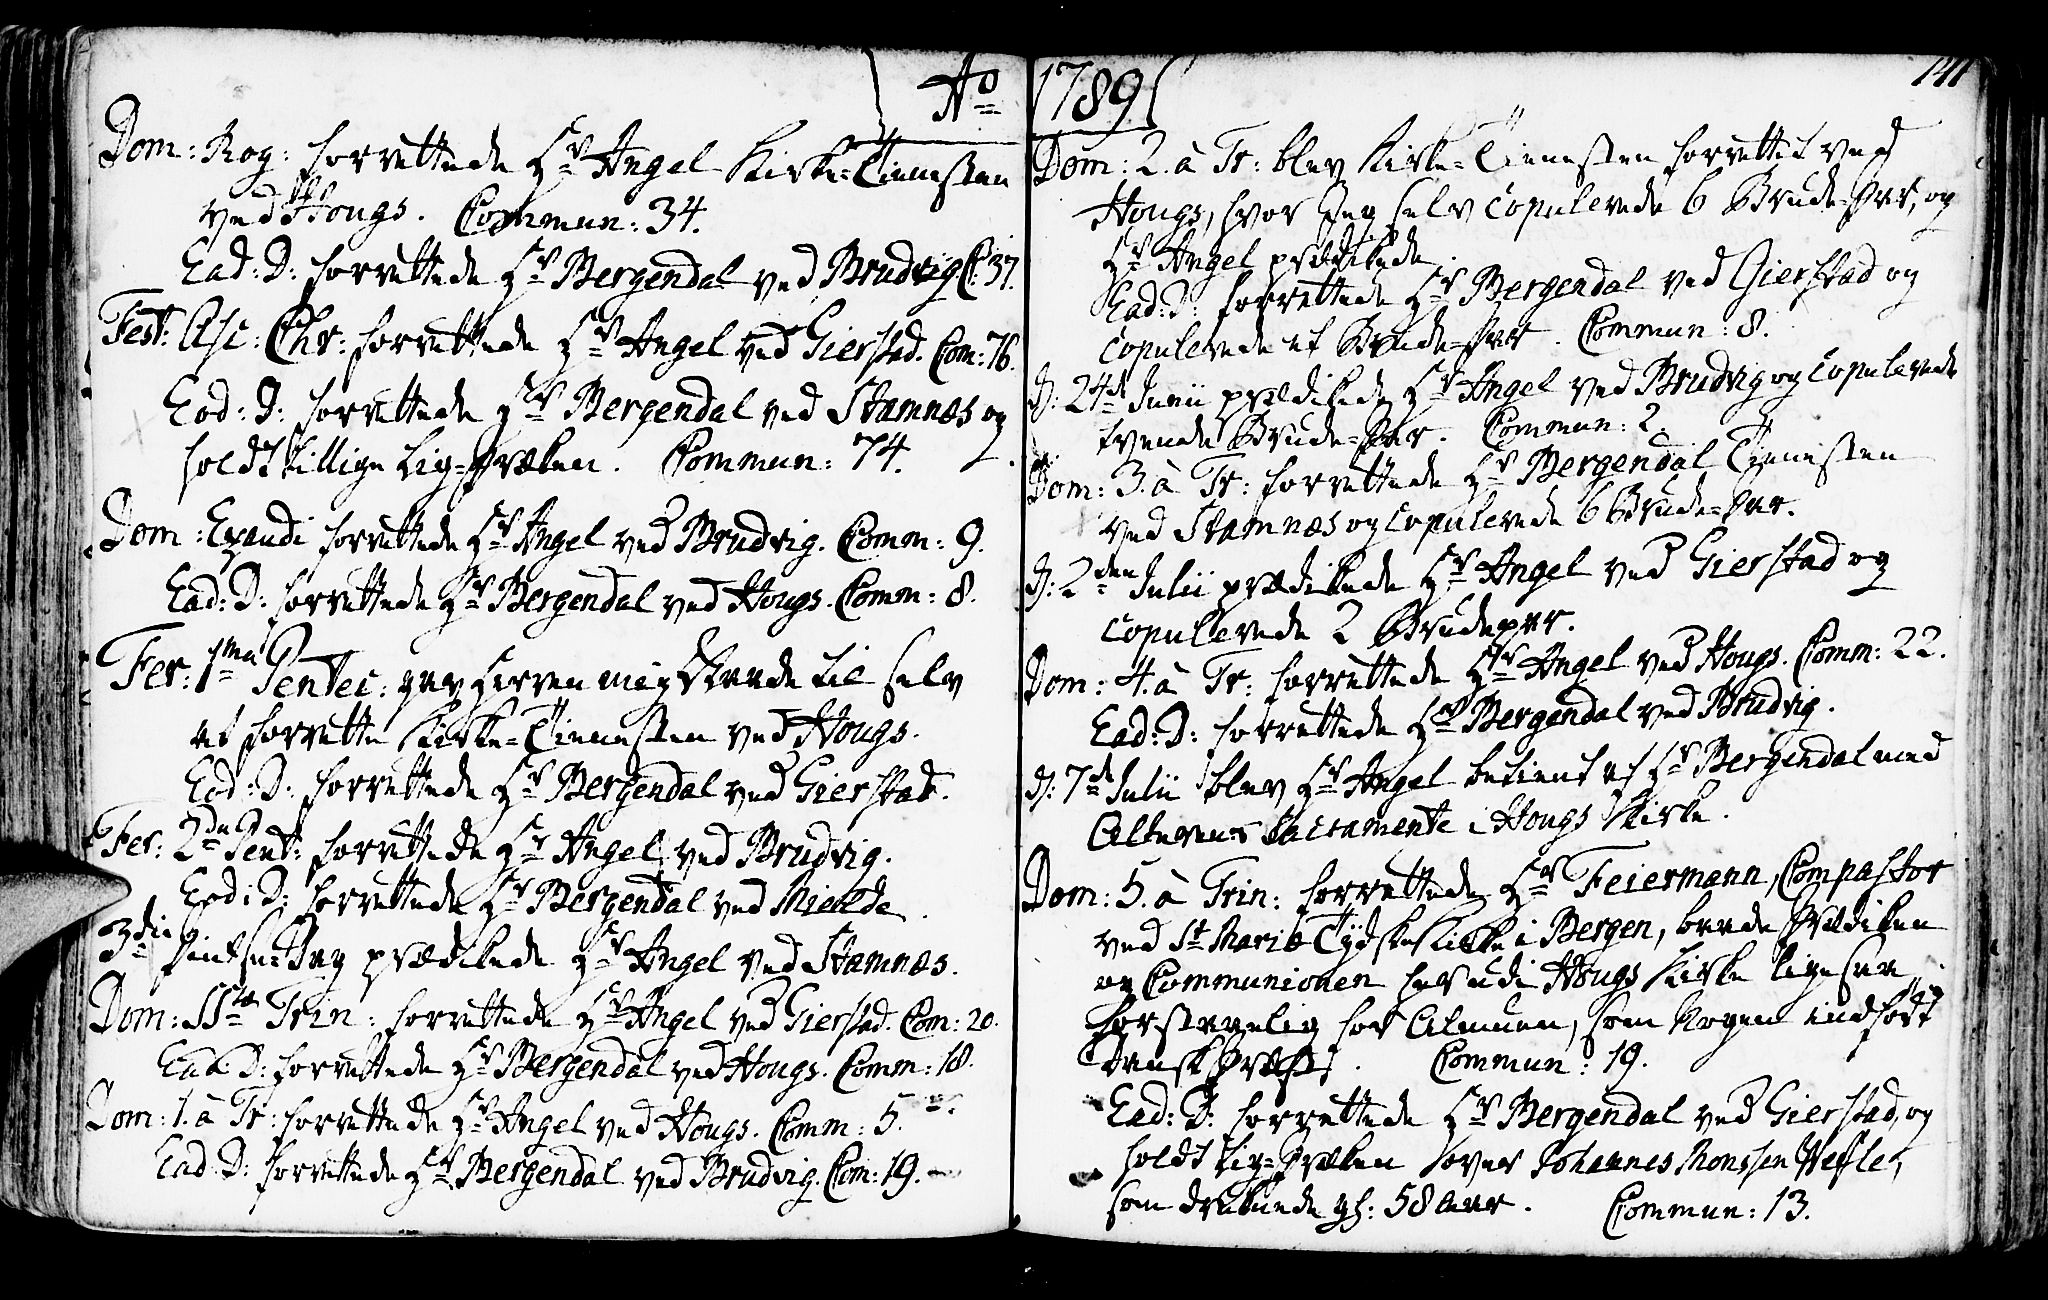 Ao 1789
141
Dom: Rog: forrettede Hr Angel Kirke-Tienesten
ved Hougs. Commun: 34.
Ead: D: forrettede Hr Bergendal ved Brudvig C: 37.
Fest: Asc: Chr: forrettede Hr Angel ved Gierstad. Com: 76.
Eod: D: forrettede Hr Bergendal ved Stamnæs og
holdt tillige Lig-Præken. Commun: 74.
Dom: Exaudi forrettede Hr Angel ved Brudvig. Comm: 9.
Ead: D: forrettede Hr Bergendal ved Hougs. Comm: 8.
Fer: 1ma Pentec: gav Herren mig Naade til selv
at forrette Kirke-Tienesten ved Hougs.
Eod: D: forrettede Hr Bergendal ved Gierstad.
Fer: 2da Pent: forrettede Hr Angel ved Brudvig.
Eod: D: forrettede Hr Bergendal ved Mielde.
3die Pintse-Dag prædikede Hr Angel ved Stamnæs.
Dom: SSta Trin: forrettede Hr Angel ved Gierstad. Com: 20.
Ead: D: forrettede Hr Bergendal ved Hougs. Comm: 18.
Dom: 1. à Tr: forrettede Hr Angel ved Hougs. Comm: 5.
Ead: D: forrettede Hr Bergendal ved Brudvig. Com: 19.
Dom: 2. à Tr: blev Kirke-Tienesten forrettet ved
Hougs, hvor Jeg selv copulerede 6 Brude-Par, og
Hr Angel prædikede.
Ead: D: forrettede Hr Bergendal ved Gierstad og
copulerede et Brude-Par. Commun: 8.
d: 24de Junii prædikede Hr Angel ved Brudvig og copulerede
tvende Brude-Par. Commun: 2.
Dom: 3. à Tr: forrettede Hr Bergendal Tienesten
ved Stamnæs og copulerede 6 Brude-Par.
d: 2den Julii prædikede Hr Angel ved Gierstad og
copulerede 2 Brudepar.
Dom: 4. à Tr: forrettede Hr Angel ved Hougs. Comm: 22.
Ead: D: forrettede Hr Bergendal ved Brudvig.
d: 7de Julii blev Hr Angel betient af Hr Bergendal med
Alterens Sacramente i Hougs Kirke.
Dom: 5. à Trin: forrettede Hr Feiermann, Compastor
ved St Mariæ Tydske Kirke i Bergen, baade Prædiken
og Communionen her udi Hougs Kirke ligesaa
forstaaelig for Almuen, som Nogen indfødt
Dansk Præst. Commun: 19.
Ead: D: forrettede Hr Bergendal ved Gierstad, og
holdt Lig-Præken over Johannes Monssen
som druknede gl: 58 aar. Commun: 13.